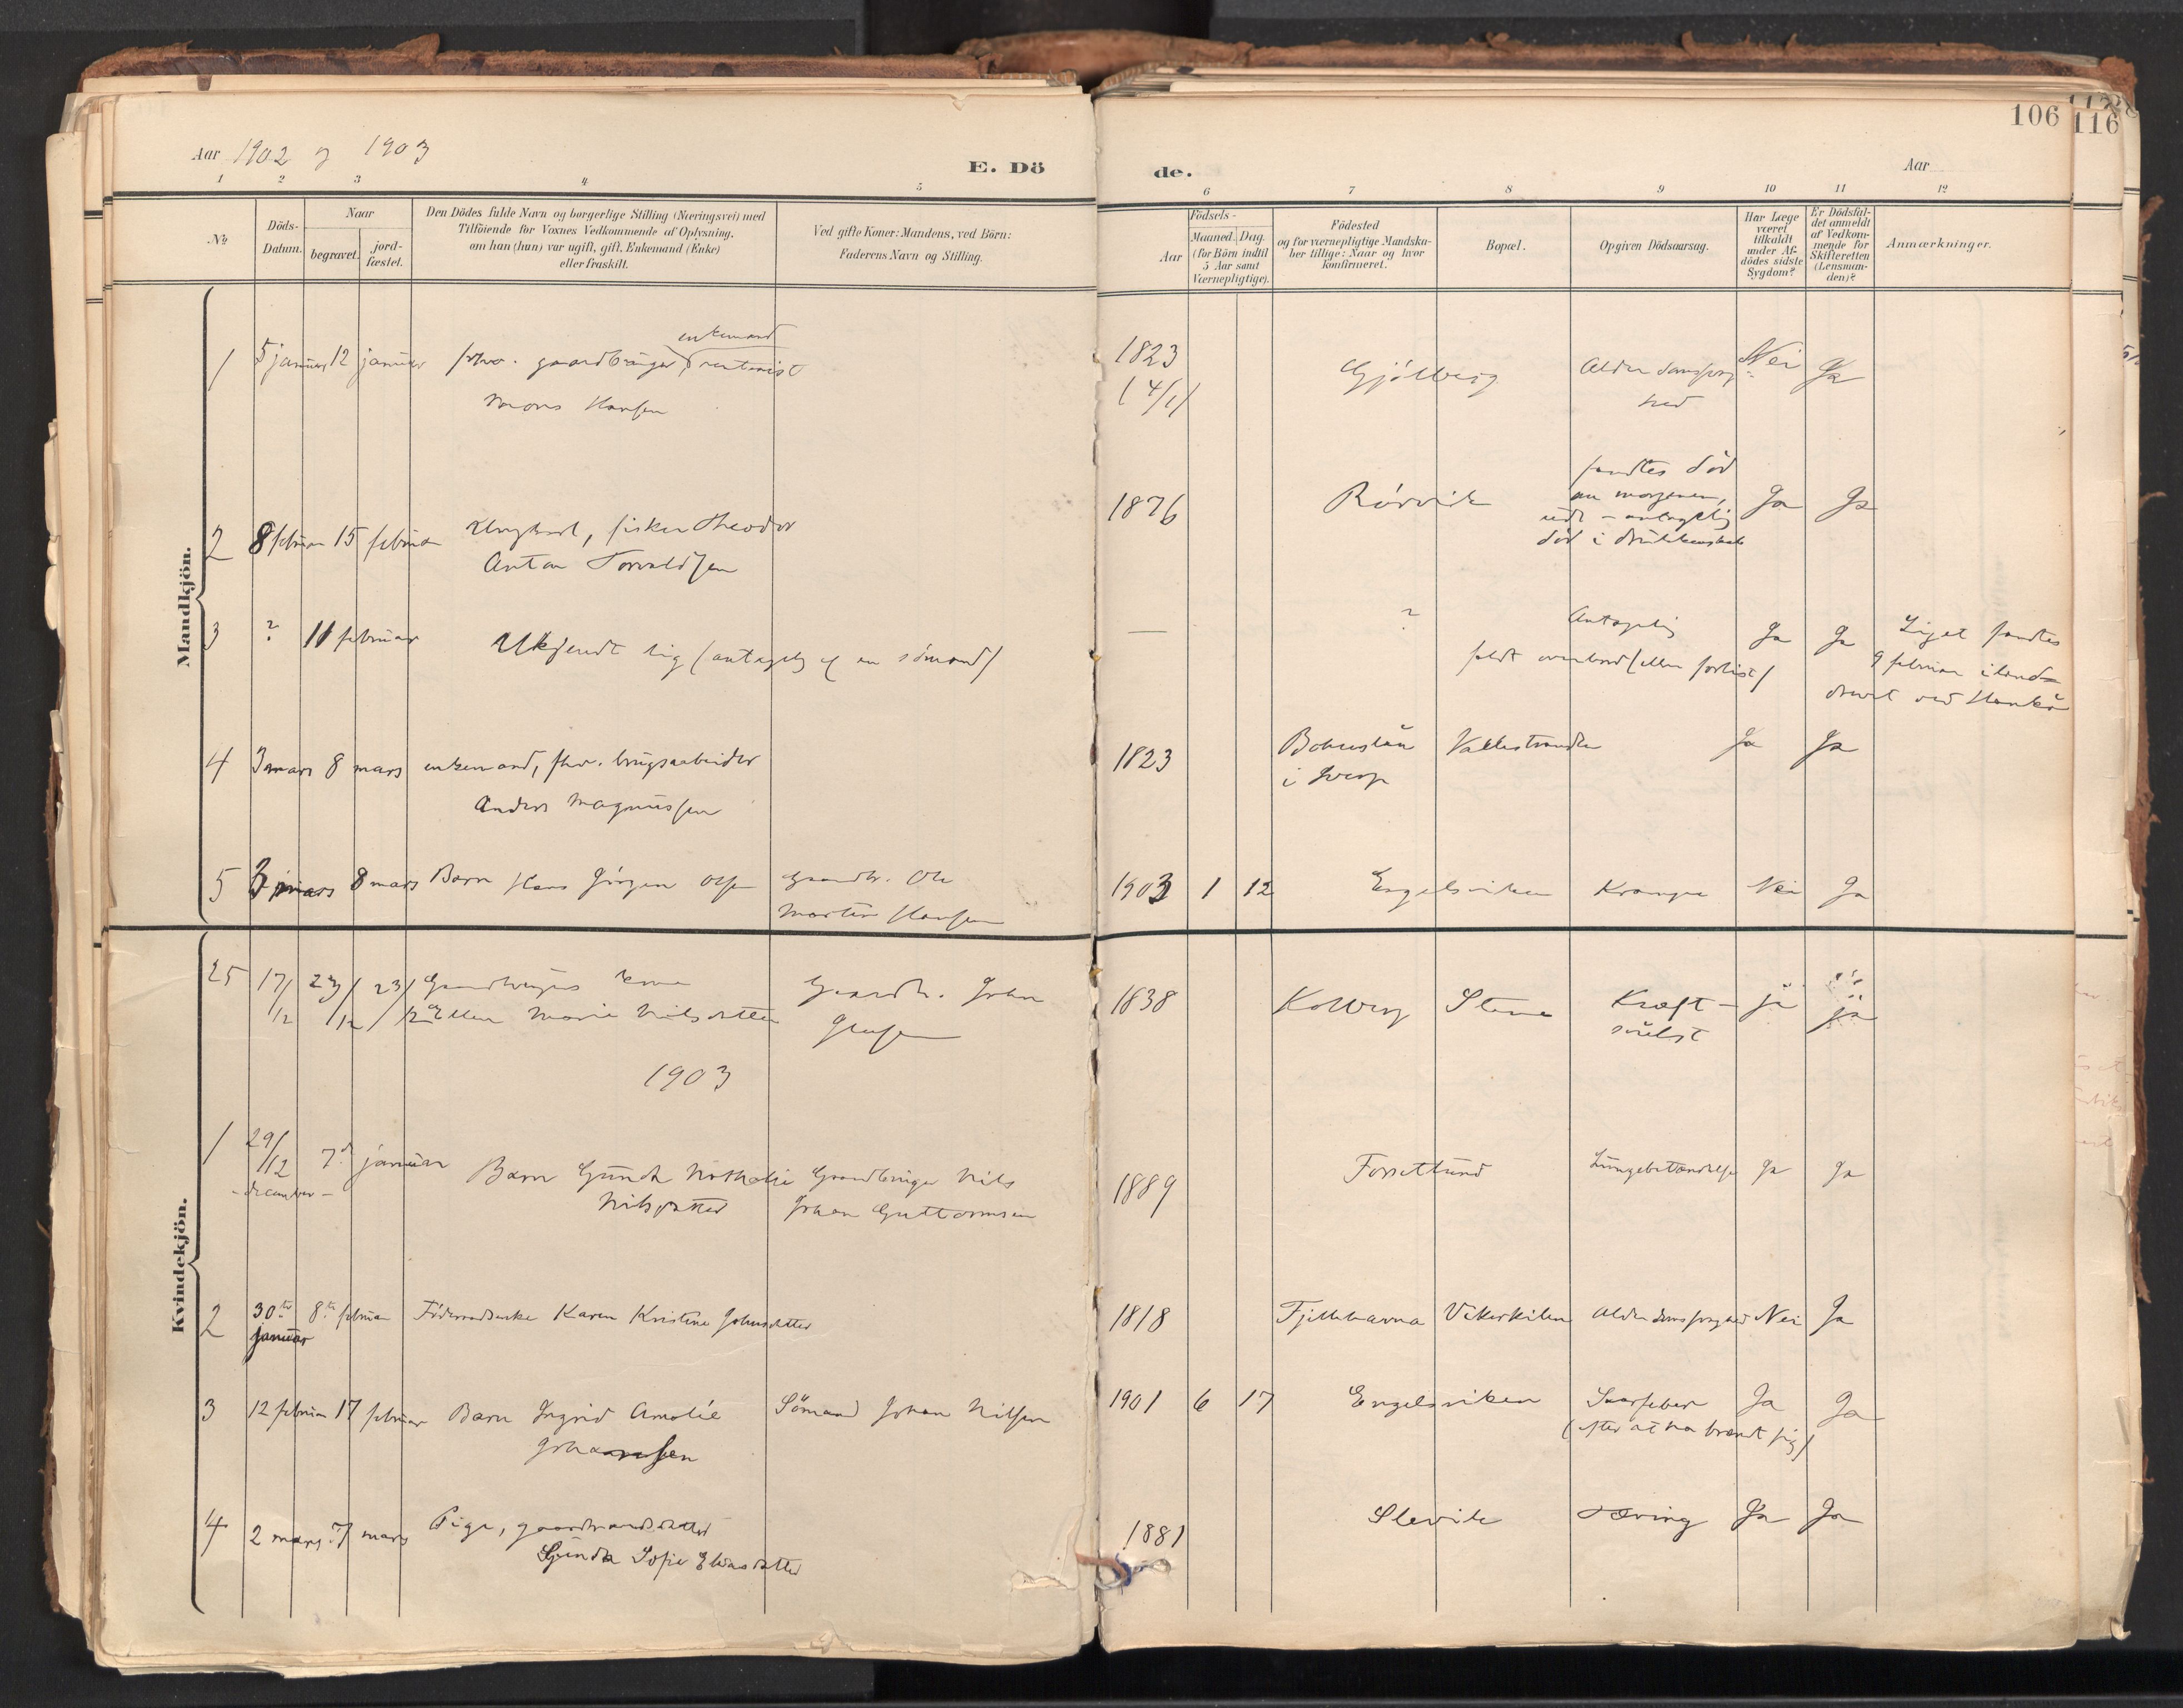 106
116
Aar 1902 og 1903
E. Dö
de.
Aar
1 2 3 4 5 6 7 8 9 10 11 12
No
Döds-Datum.
Naar
begravet.
jord-fæstet.
Den Dödes fulde Navn og borgerlige Stilling (Næringsvei) med
Tilföiende for Voxnes Vedkommende af Oplysning.
om han (hun) var ugift, gift, Enkemand (Enke)
eller fraskilt.
Ved gifte Koner: Mandens, ved Börn:
Faderens Navn og Stilling.
Födsels-
Aar
Maaned. Dag.
(for Börn indtil
5 Aar samt
Værnepligtige).
Födested
og for værnepligtige Mandska-
ber tillige: Naar og hvor
konfirmeret.
Bopæl.
Opgiven Dödsaarsag.
Har Læge
været
tilkaldt
under Af-
dödes sidste
Sygdom?
Er Dödsfal-
det anmeldt
af Vedkom-
mende for
Skifteretten
(Lensman-
den)?
Anmærkninger.
Mandkjön.
enkemand
1 5 januar 12 januar fhv. gaardbruger, rentenist
Mons Hansen
1823
(4/1)
Gjölberg
Alderdomssvag-
hed
Nei Ja
2 8 februar 15 februar Ungkarl, fisker Theodor
Anton Torvaldsen
1876
Rörvik
fandtes död
om morgenen,
ude - antagelig
död i drukkenskab
Ja Ja
3 ? 11 februar Ukjendt lig (antagelig af en sömand)
—
?
Antagelig
faldt overbord (eller forlist)
Ja Ja
Liget fandtes
9 februar iland-
drevet ved Hankö
4 3 mars 8 mars enkemand, fhv. brugsarbeider
Anders Magnussen
1823
Bohuslän
i Sverge
Vallestranden
Ja Ja
5 3 mars 8 mars Barn Hans Jörgen Olsen
Gaardbr. Ole
Martin Hansen
1903 1 12 Engelsviken Krampe Nei Ja
Kvindekjön.
25 17/12 23/12 23/12 Gaardbrugers kone
Ellen Marie Nilsdatter
Gaardbr. Johan
Olesen
1838 Kolberg Stene Kræft-
svulst
ja ja
1903
1 29/12 7de januar
- december -
Barn Gunda Nathalie
Nilsdatter
Gaardbruger Nils
Johan Guttormsen
1889 Forsetlund Lungebetændelse Ja Ja
2 30te 8de februar Föderaadsenke Karen Kristine Johnsdatter
januar
1818 Fjillehavna Vikerkilen Alderdomssvaghed Nei Ja
3 12 februar 17 februar Barn Ingrid Amalie
Johannsen
Sömand Johan Nilsen
1901 6 17 Engelsviken Saarfeber
(efter at ha brændt sig)
Ja Ja
4 2 mars 7 mars Pige, gaardmandsdatter
Gunda Sofie Eliasdatter
1881 Slevik Tæring Ja Ja